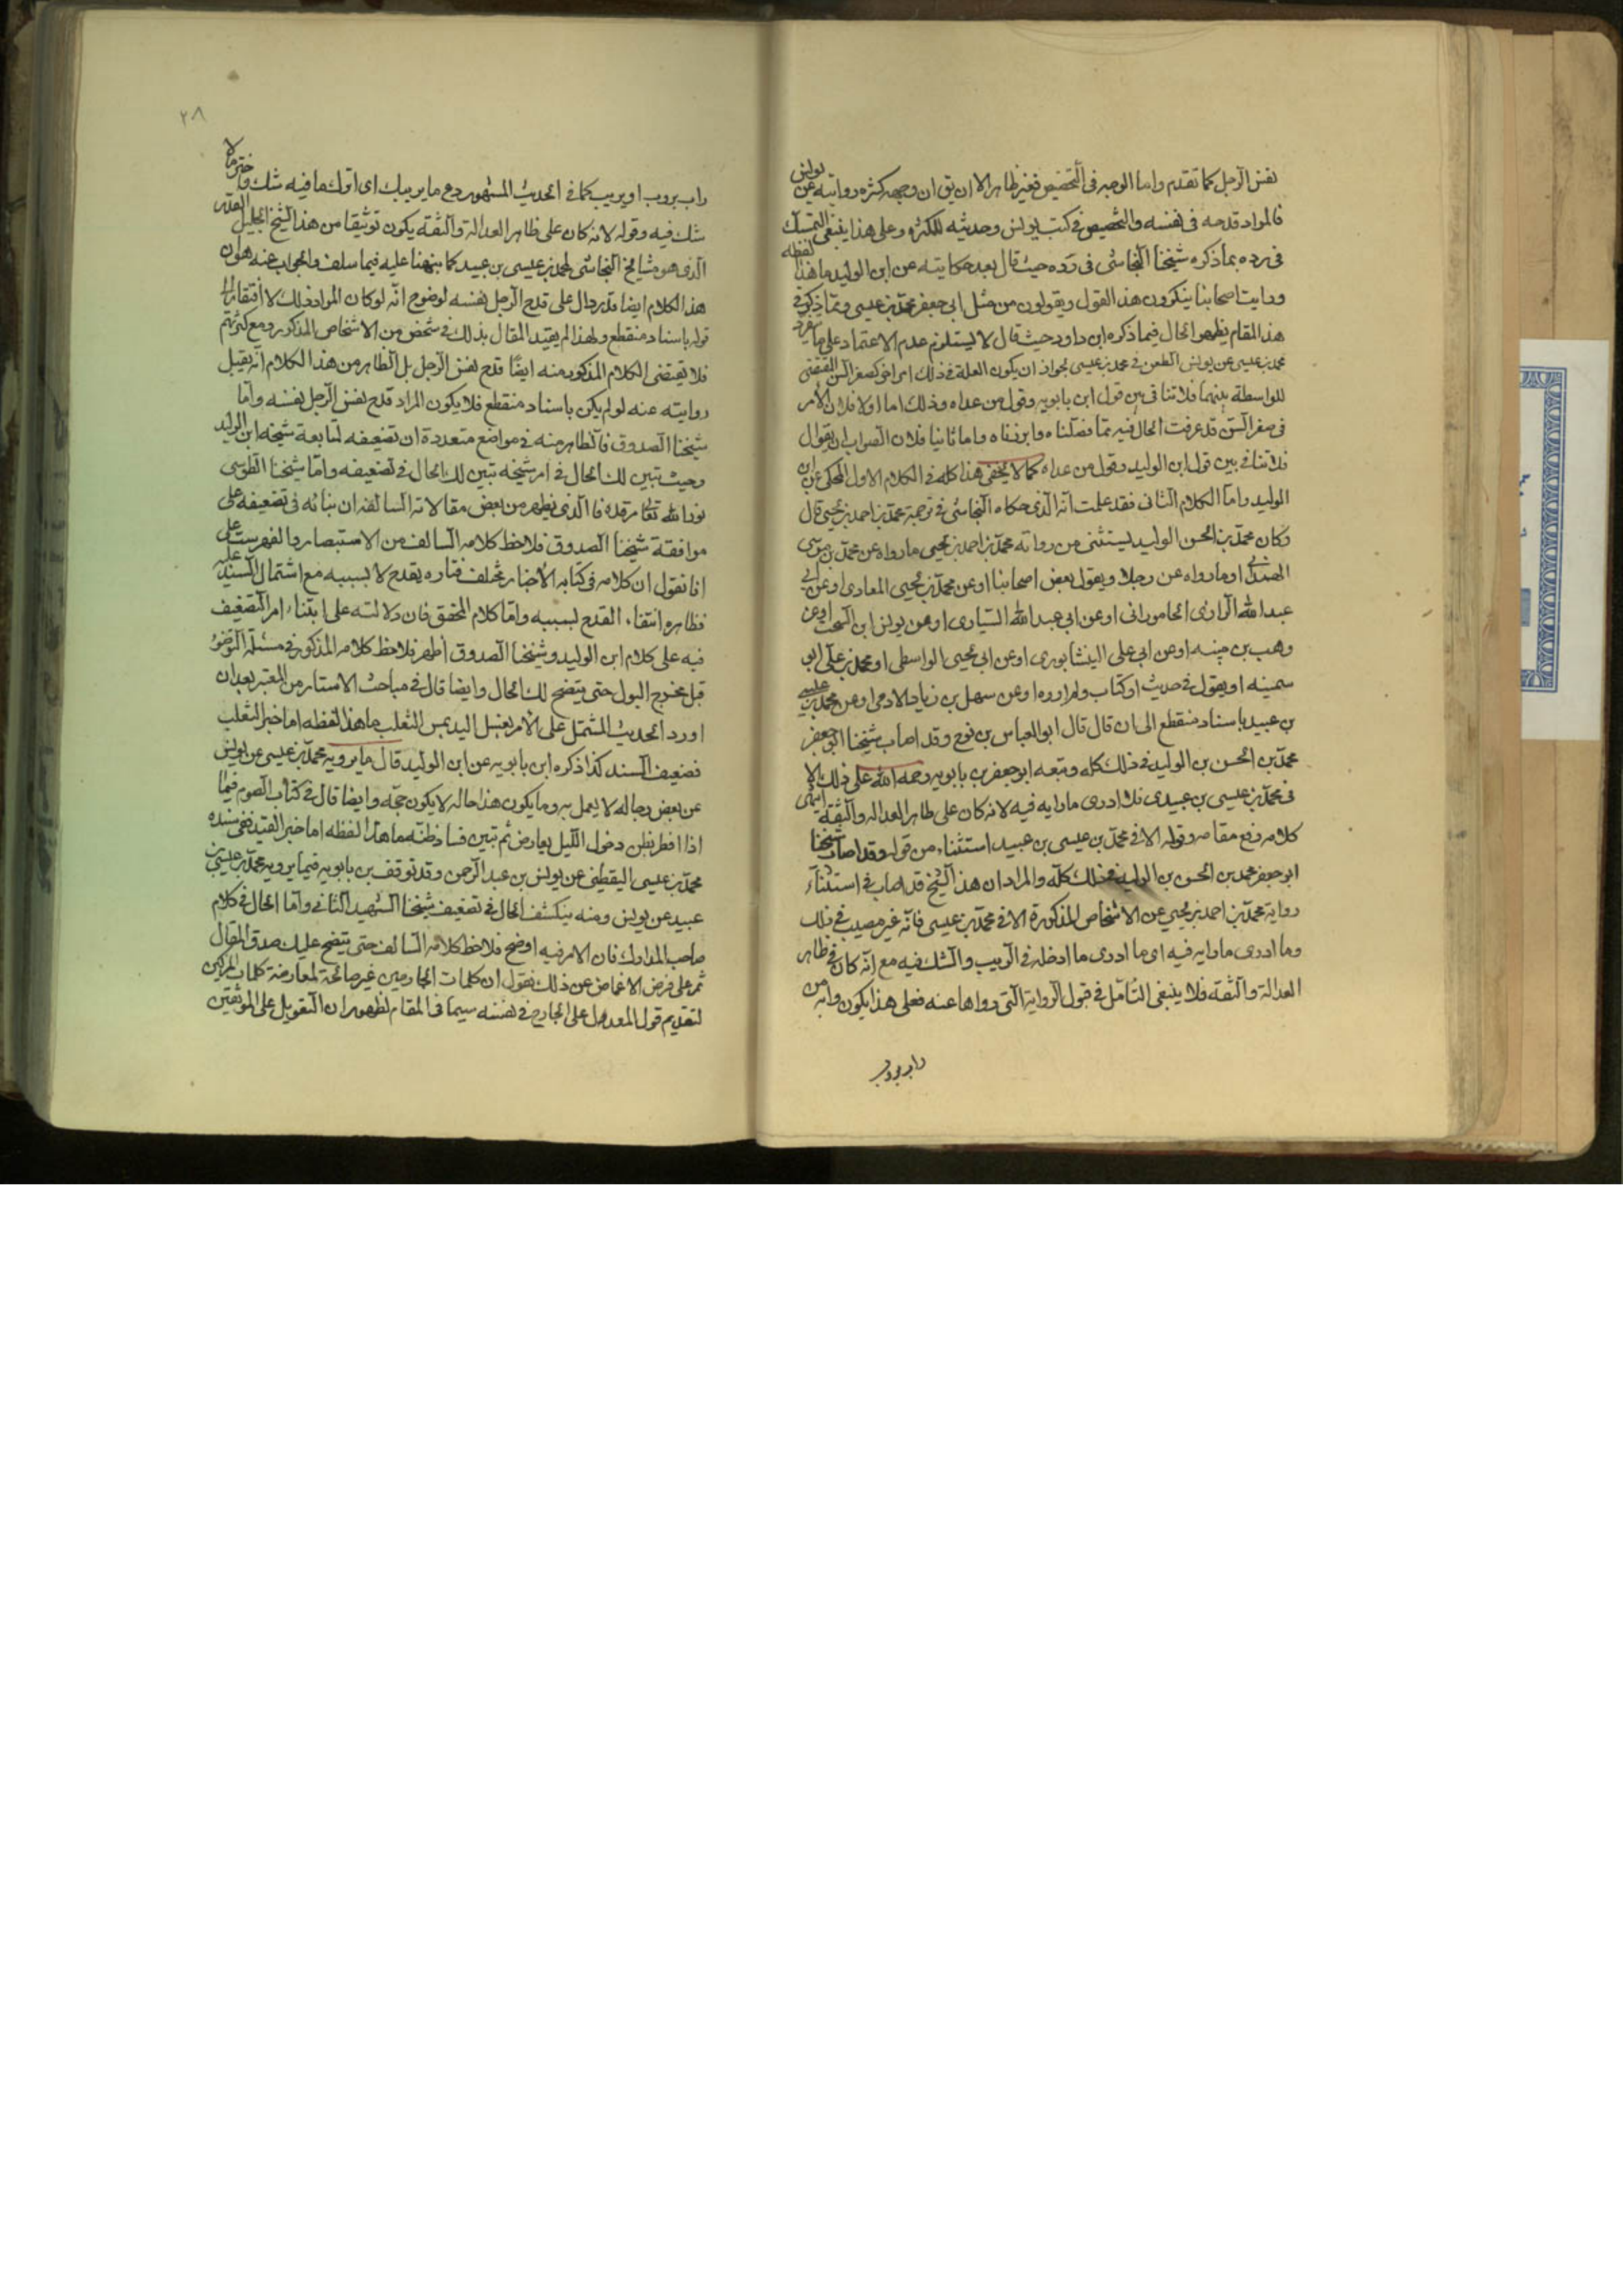 نفس الرجل كما تقدم واما الوجه في التخصيص فغير ظاهر الا ان يق ان وجهه كثرة روايته عن يونس
فالمراد قدحه في نفسه والتخصيص في كتب يونس وحديثه للكثرة وعلى هذا ينبغي التمسك
في رده بما ذكره شيخنا النجاشي في رده حيث قال بعد حكايته عن ابن الوليد ما هذا لفظه
ورايت اصحابنا ينكرون هذا القول ويقولون من مثل ابي جعفر محمد بن عيسى ومما ذكر في
هذا المقام يظهر الحال فيما ذكره ابن داود حيث قال لا يستلزم عدم الاعتماد على ما ينفرد
محمد بن عيسى عن يونس الطعن في محمد بن عيسى لجواز ان يكون العلة في ذلك امر اخر كصغر السن المقتضي
للواسطة بينهما فلا تنافي بين قول ابن بابويه وقول من عداه وذلك اما اولا فلان الامر
في صغر السن قد عرفت الحال فيه مما فصلناه وابرزناه واما ثانيا فلان الصواب ان يقول
فلا تنافي بين قول ابن الوليد وقول من عداه كما لا يخفى هذا كله في الكلام الاول المحكي عن ابن
الوليد واما الكلام الثاني فقد علمت انه الذي حكاه النجاشي في ترجمة محمد بن احمد بن يحيى قال
وكان محمد بن الحسن الوليد يستثنى من رواية محمد بن احمد بن يحيى ما رواه عن محمد بن موسى
الهمداني او ما رواه عن رجل او يقول بعض اصحابنا او عن محمد بن يحيى المعاذي او عن ابي
عبد الله الرازي الجاموراني او عن ابي عبد الله السياري او عن يونس ابن السخت او عن
وهب بن منبه او عن ابي علي النيشابوري او عن ابي يحيى الواسطي او محمد بن علي ابو
سمينه او يقول في حديث او كتاب ولم اروه او عن سهل بن زياد الادمي او عن محمد بن عيسى
بن عبيد باسناد منقطع الى ان قال قال ابو العباس بن نوح وقد اصاب شيخنا ابو جعفر
محمد بن الحسن بن الوليد في ذلك كله وتبعه ابو جعفر بن بابويه رحمه الله على ذلك الا
في محمد بن عيسى بن عبيد فلا ادري ما رابه فيه لانه كان على ظاهر العدالة والثقة انتهى
كلامه رفع مقامه وقوله الا في محمد بن عيسى بن عبيد استثناء من قوله وقد اصاب شيخنا
ابو جعفر محمد بن الحسن بن الوليد في ذلك كله والمراد ان هذا الشيخ قد اصاب في استثناء
رواية محمد بن احمد بن يحيى عن الاشخاص المذكورة الا في محمد بن عيسى فانه غير مصيب في ذلك
وما ادري ما رابه فيه اي ما ادري ما ادخله في الريب والشك فيه مع انه كان في ظاهر
العدالة والثقة فلا ينبغي التامل في قبول الرواية التي رواها عنه فعلى هذا يكون رابه من
راب يروب
٢٨
راب يروب او يريب كما في الحديث المشهور دع ما يريبك اي اترك ما فيه شك واختر ما لا
شك فيه وقوله لانه كان على ظاهر العدالة والثقة يكون توثيقا من هذا الشيخ الجليل القدر
الذي هو من مشايخ النجاشي لمحمد بن عيسى بن عبيد كما نبهنا عليه فيما سلف والجواب عنه هو ان
هذا الكلام ايضا قد دال على قدح الرجل بنفسه لوضوح انه لو كان المراد ذلك لا افتقار الى
قوله باسناد منقطع ولهذا لم يقيد المقال بذلك في شخص من الاشخاص المذكور ومع كثرتهم
فلا يقتضي الكلام المذكور منه ايضا قدح نفس الرجل بل الظاهر من هذا الكلام انه يقبل
روايته عنه لو لم يكن باسناد منقطع فلا يكون المراد قدح نفس الرجل نفسه واما
شيخنا الصدوق فالظاهر منه في مواضع متعددة ان تضعيفه لمتابعة شيخه ابن الوليد
وحيث تبين لك الحال في امر شيخه تبين لك الحال في تضعيفه واما شيخنا الطوسي
نور الله تعالى مرقده فالذي يظهر من بعض مقالاته السالفة ان بنائه في تضعيفه على
موافقة شيخنا الصدوق فلاحظ كلامه السالف من الاستبصار والفهرست على
انا نقول ان كلامه في كتابه الاخبار مختلف فتاره يقدح لا بسببه مع اشتمال السند عليه
فظاهره انتفاء القدح بسببه واما كلام المحقق فان دلالته على ابتناء امر التضعيف
فيه على كلام ابن الوليد وشيخنا الصدوق اظهر فلاحظ كلامه المذكور في مسئلة الوضوء
قبل مخرج البول حتى يتضح لك الحال وايضا قال في مباحث الاستار من المعتبر بعد ان
اورد الحديث المشتمل على الامر بغسل اليد بمس الثعلب ما هذا لفظه اما خبر الثعلب
فضعيف السند كذا ذكره ابن بابويه عن ابن الوليد قال ما يرويه محمد بن عيسى عن يونس
عن بعض رجاله لا يعمل به وما يكون هذا حاله لا يكون حجة وايضا قال في كتاب الصوم فيما
اذا افطر بظن دخول الليل بعارض ثم تبين فساد ظنه ما هذا لفظه اما خبر القيد ففي سنده
محمد بن عيسى اليقطيني عن يونس بن عبد الرحمن وقد توقف بن بابويه فيما يرويه محمد بن عيسى بن
عبيد عن يونس ومنه ينكشف الحال في تضعيف شيخنا الشهيد الثاني واما الحال في كلام
صاحب المدارك فان الامر فيه اوضح فلاحظ كلامه السالف حتى يتضح عليك صدق المقال
ثم على فرض الاغماض عن ذلك نقول ان كلمات الجارحين غير صالحة لمعارضة كلمات المزكين
لتقديم قول المعدل على الجارح في نفسه سيما في المقام لظهور ان التعويل على الموثقين